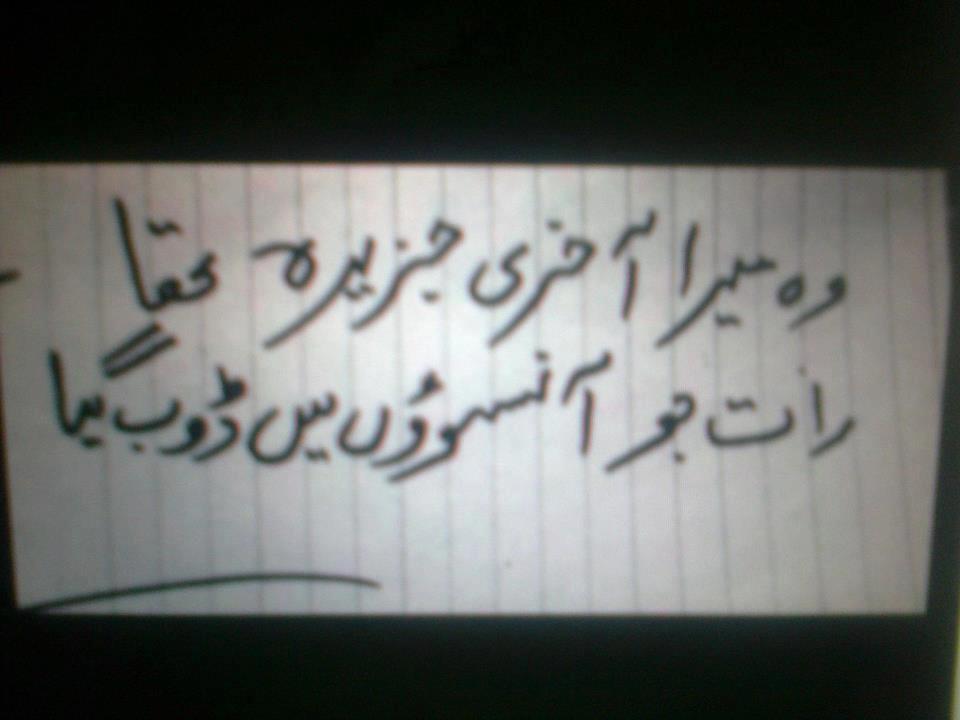 وہ میرا آخری جزیرہ تھا
رات جو آنسوؤں میں ڈوب گیا